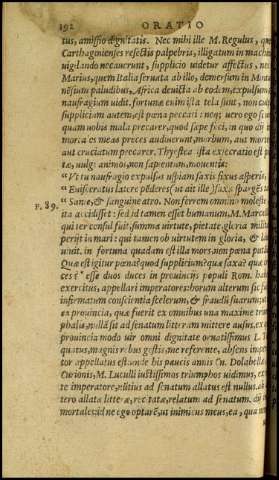 192 ORATIO
tus, amissio dignitatis. Nec mihi ille M. Regulus, que
Carthaginienses resectis palpebris, illigatum in machin
uigilando necauerunt, supplicio uidetur affectus, nec
Marius, quem Italia seruata ab illo, demersum in Mintur
nensium paludibus, Africa deuicta ab eodem, expulsum
naufragium uidit. fortunæ enim ista tela sunt, non cul
supplicium autem, est pœna peccati: neq; uero ego si
quam uobis mala precarer, quod sæpe feci, in quo dij
morta es meas preces audierunt, morbum, aut mortem
aut cruciatum precarer. Thyestea ista execratio est po
tæ, uulgi animos, non sapientum, mouentis:
“Vt tu naufragio expulsus uspiam saxis fixus asperis,
“Euisceratus latere penderes, ut ait ille, saxa spargens ta
“Sanie, & sanguine atro. Non ferrem omnino moleste
F. 89. ita accidisset: sed id tamen esset humanum. M. Marcel
qui ter consul fuit, summa uirtute, pietate, gloria milit
perijt in mari: qui tamen ob uirtutem in gloria, & lau
uiuit. in fortuna quadam est illa mors, non pœna putan
Quæ est igitur pœna? quod supplicium? quæ saxa? quæ
ces? esse duos duces in prouincijs populi Rom. hab
exercitus, appellari imperatores: horum alterum sic
infirmatum conscientia scelerum, & fraudū suarum,
ex prouincia, quæ fuerit ex omnibus una maxime trium
phalis, nullas sit ad senatum litteras mittere ausus, ex
prouincia modo uir omni dignitate ornatissimus L.
quatus, magnis rebus gestis, me referente, absens impe
tor appellatus est. unde his paucis annis Cn. Dolabellæ
Curionis, M. Luculli iustissimos triumphos uidimus, ex
te imperatore, nūtius ad senatum allatus est nullus. ab
tero allatæ litteræ, recitatæ, relatum ad senatum. dij im
mortales: id ne ego optarem, ut inimicus meus, ea, qua nem